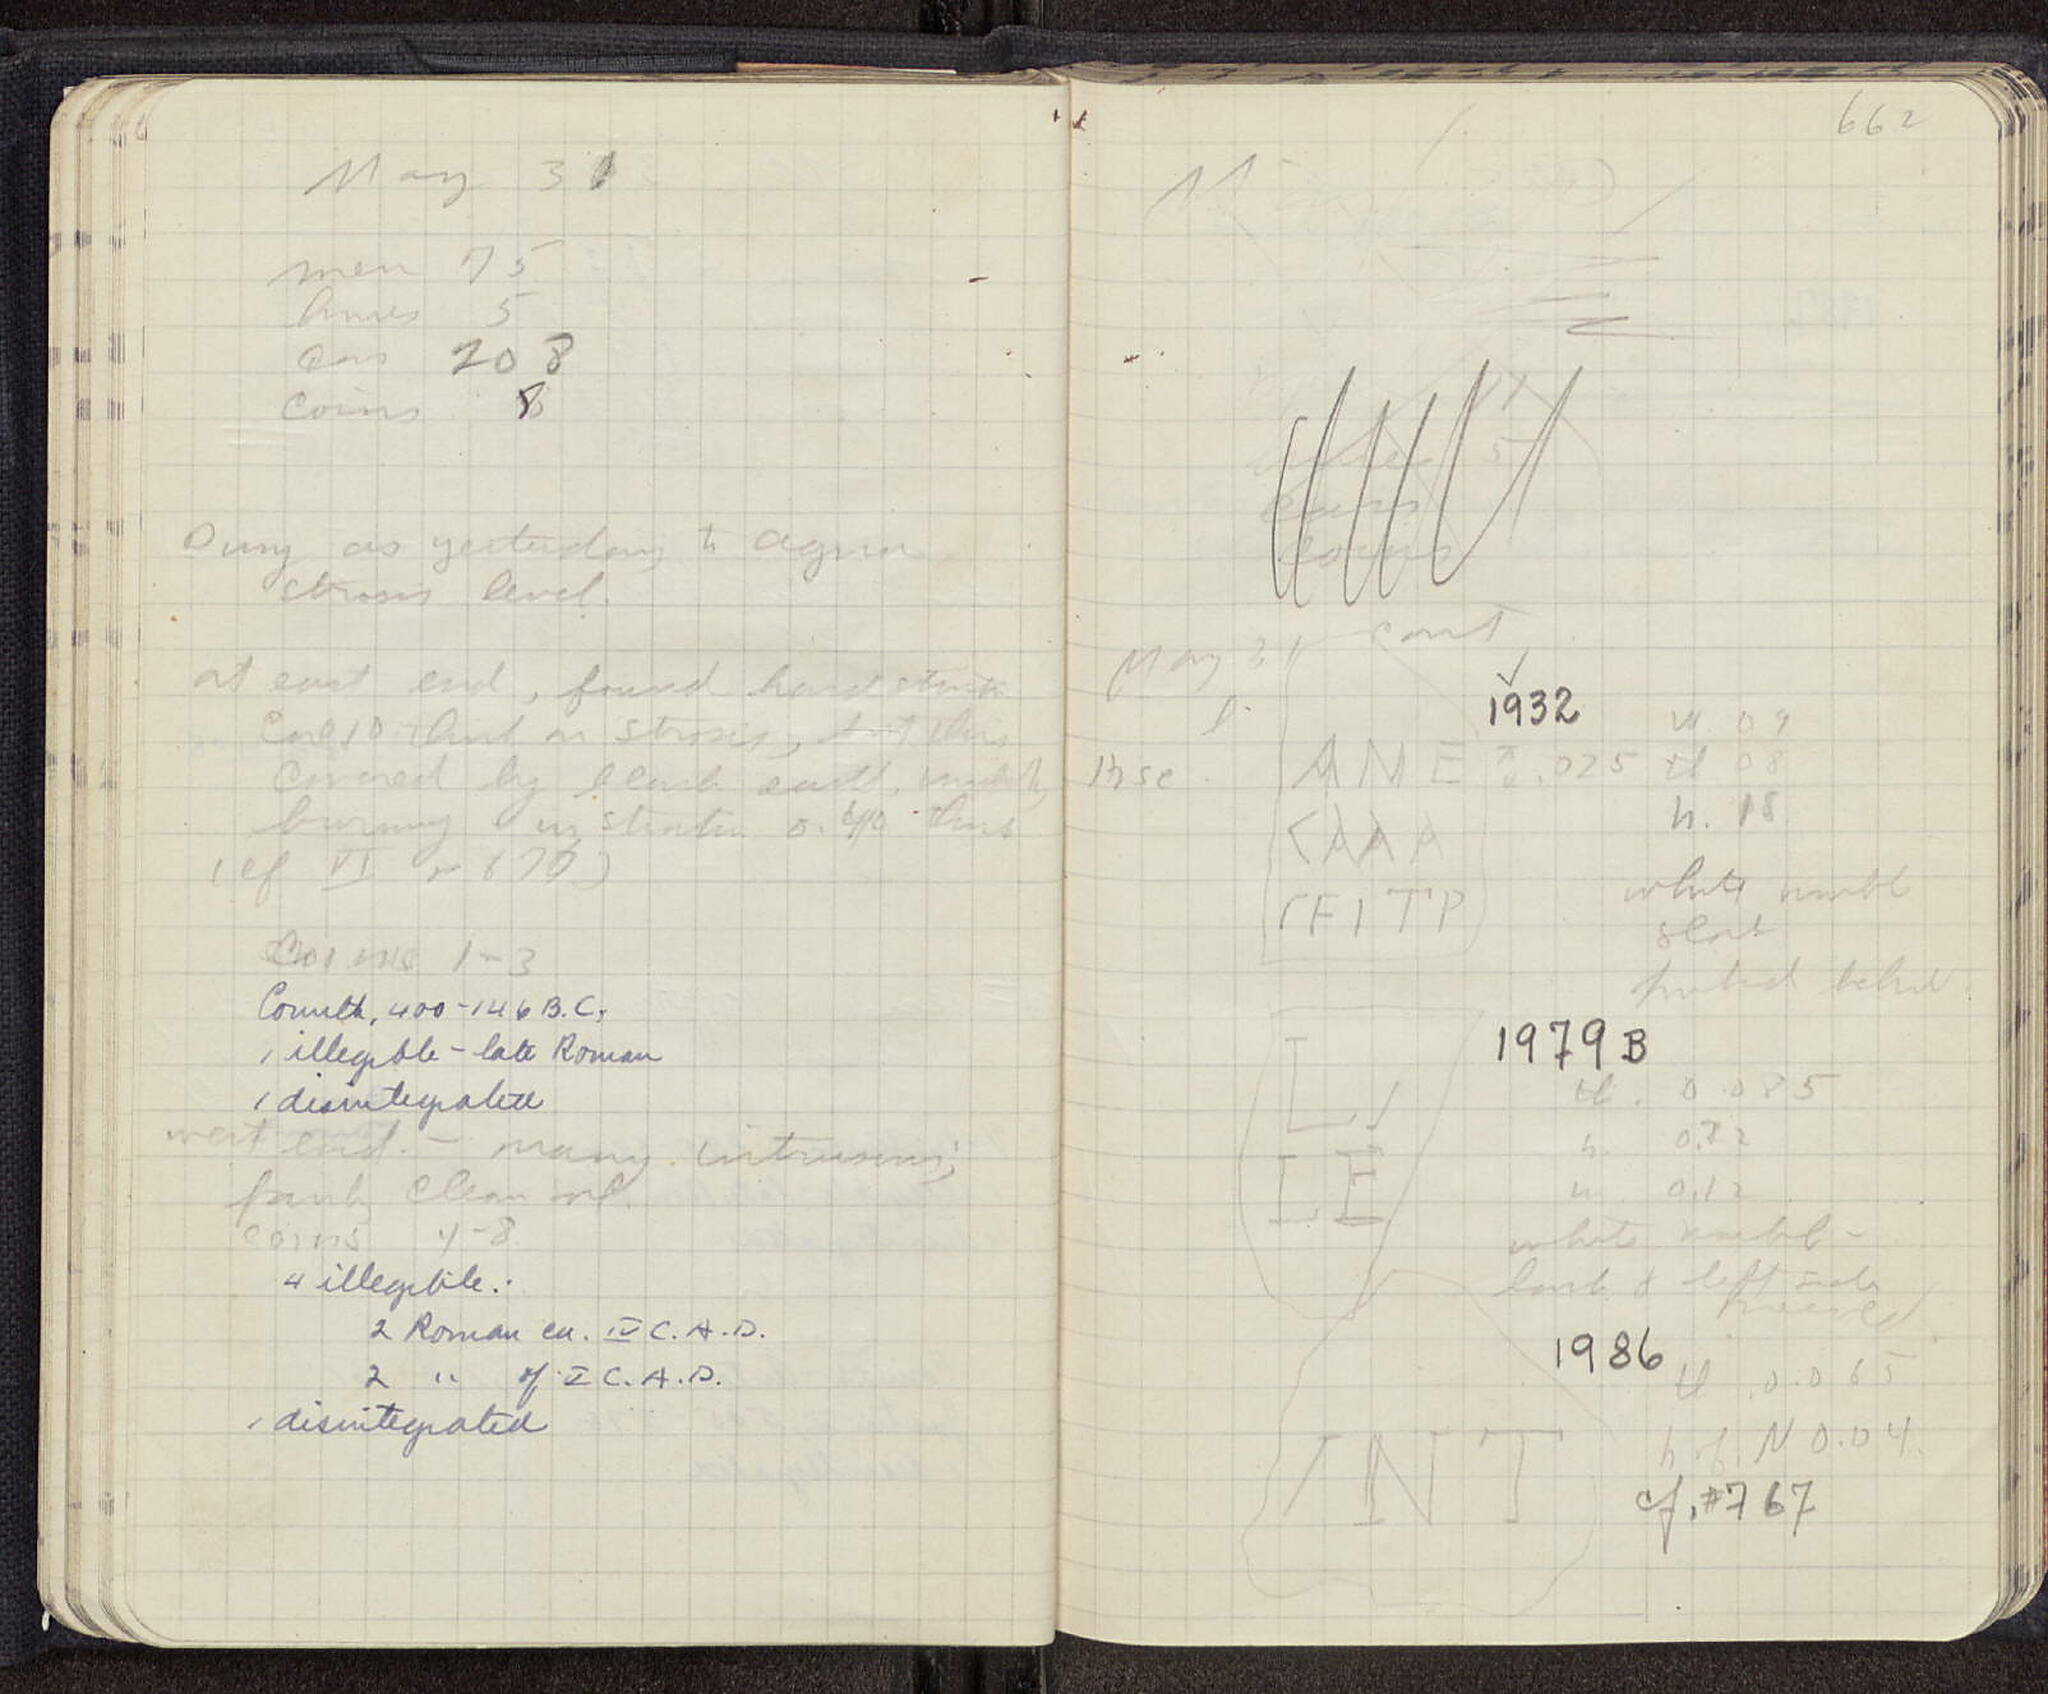 May 31
men 75
hours 5
cars 208
coins 8
Dug as yesterday to agora
strosis level.
at east end, found hard
strosis, but this
covered by black earth,
burning in stratum 0.40 thick
(cf VI p 677)
Coins 1-3
Corinth, 400-146 B.C.
1 illegible - late Roman
1 disintegrated
west end. - many intrusions;
fairly clean soil.
coins 4-8
4 illegible:
2 Roman ca. IV C. A. D.
2 " of I C. A. D.
1 disintegrated
662
hours 5
cars
coins
May 31 cont
1932
w .09
Insc. ANE .025 th 08
h. .18
CAAA
ΓEITP
white marble
slab
behind
1979 B
th. 0.085
h. 0.22
w. 0.12
L
LE
white marble -
back & left side
preserved
1986
th 0.065
INT
h. of N 0.04.
cf. #767